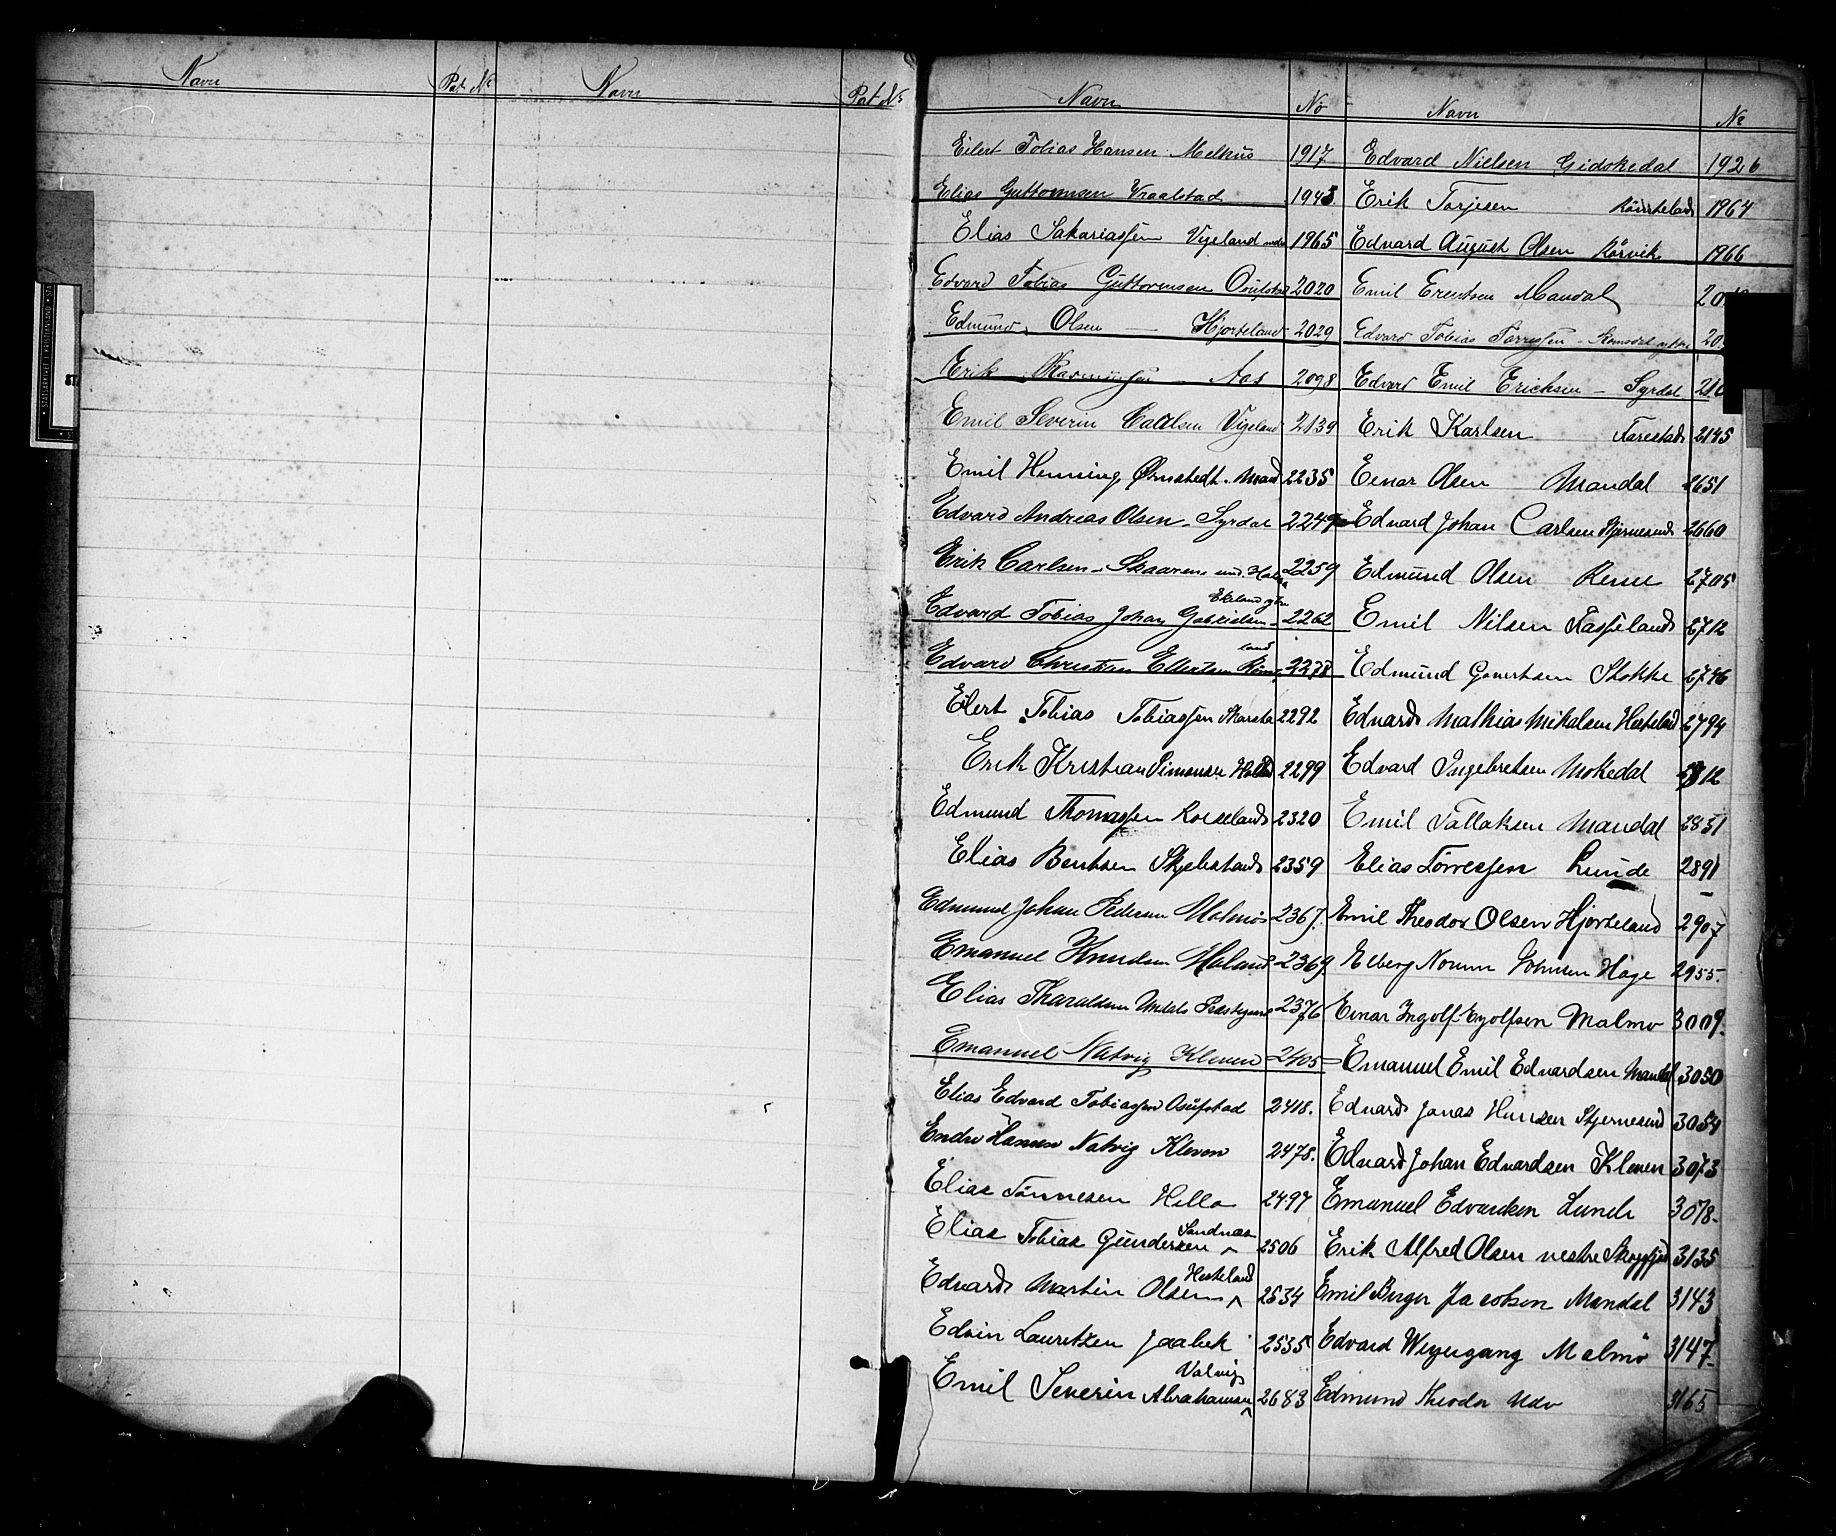 Navn Pat № Navn Pat №
Navn No Navn №
Eilert Tobias Hansen Melhus 1917 Edvard Nielsen Gidskedal 1926
Elias Guttormsen Vraalstad 1943 Erik Torjesen 1964
Elias Sakariassen Vigeland 1965 Edvard August Olsen Rørvik 1966
Edvard Tobias Guttormsen Osufstad 2020 Emil Erentsen Mandal
Edmund Olsen Hjorteland 2029 Edvard Tobias Tørressen
Erik Rasmussen Aas 2098 Edvard Emil Ericksen - Syrdal
Emil Severin Carlsen Vigeland 2139 Erik Karlsen Farestad 2145
Emil Henning Ørnstedt Mand 2235 Einar Olsen Mandal 2651
Edvard Andreas Olsen - Syrdal 2249 Edvard Johan Carlsen Stjernesund 2660
Erik Carlsen - Skaaren 2259 Edmund Olsen Reme 2705
Ekeland ytre
Edvard Tobias Johan Gabrielsen 2262 Emil Nilsen Tasseland 2712
land
Edvard Christian Ellertsen 2278 Edmund Govertsen Stokke 2746
Eilert Tobias Tobiassen 2292 Edvard Mathias Mikalsen Hesteland 2794
Erik Kristian Simonsen 2299 Edvard Ingebretsen Mokedal 2812
Edmund Thomassen Roiseland 2320 Emil Tallaksen Mandal 2851
Elias Bentsen Skjebstad 2359 Elias Tørressen Lunde 2891
Edmund Johan Pedersen Malmø 2367. Emil Theodor Olsen Hjorteland 2907
Emanuel Knudsen Holand 2369 Elberg Johnsen Hage 2955.
Elias Tharaldsen 2376 Einar Ingolf Eyolfsen Malmø 3009.
Emanuel Natvig Kleven 2405 Emanuel Emil Edvardsen Mandal 3050
Elias Edvard Tobiassen Osufstad 2418. Edvard Jonas Hansen Stjernesund 3054
Endre Hansen Natvig Kleven 2478. Edvard Johan Edvardsen Kleven 3073
Elias Tønnesen Hille 2497 Emanuel Edvardsen Lunde 3078.
Sandnæs
Elias Tobias Gundersen 2506 Erik Alfred Olsen vestre Skogsfjord 3135
Hesteland
Edvard Martin Olsen 2534 Emil Birger Jacobsen Mandal 3143
Edvin Lauretzen Jaabek 2535 Edvard Weyergang Malmø 3147.
Valvig
Emil Severin Abrahamsen 2683 Edmund Theodor Udø 3165